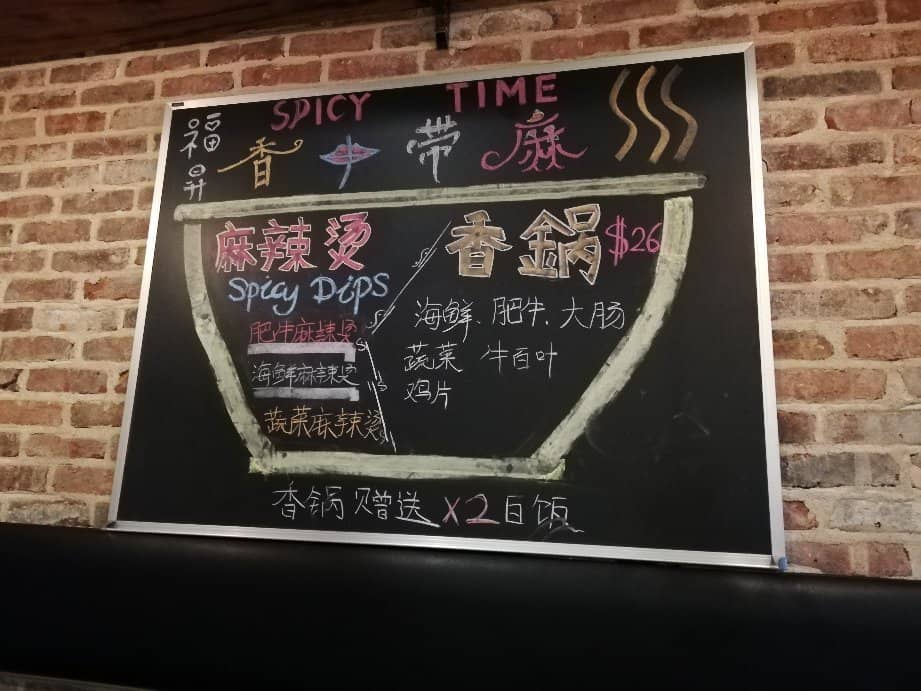 SPICY TIME
福昇
香中带麻
麻辣烫
Spicy Dips
肥牛麻辣烫
海鲜麻辣烫
蔬菜麻辣烫
香鍋 $26
海鲜、肥牛、大肠
蔬菜 牛百叶
鸡片
香锅赠送 x2白饭